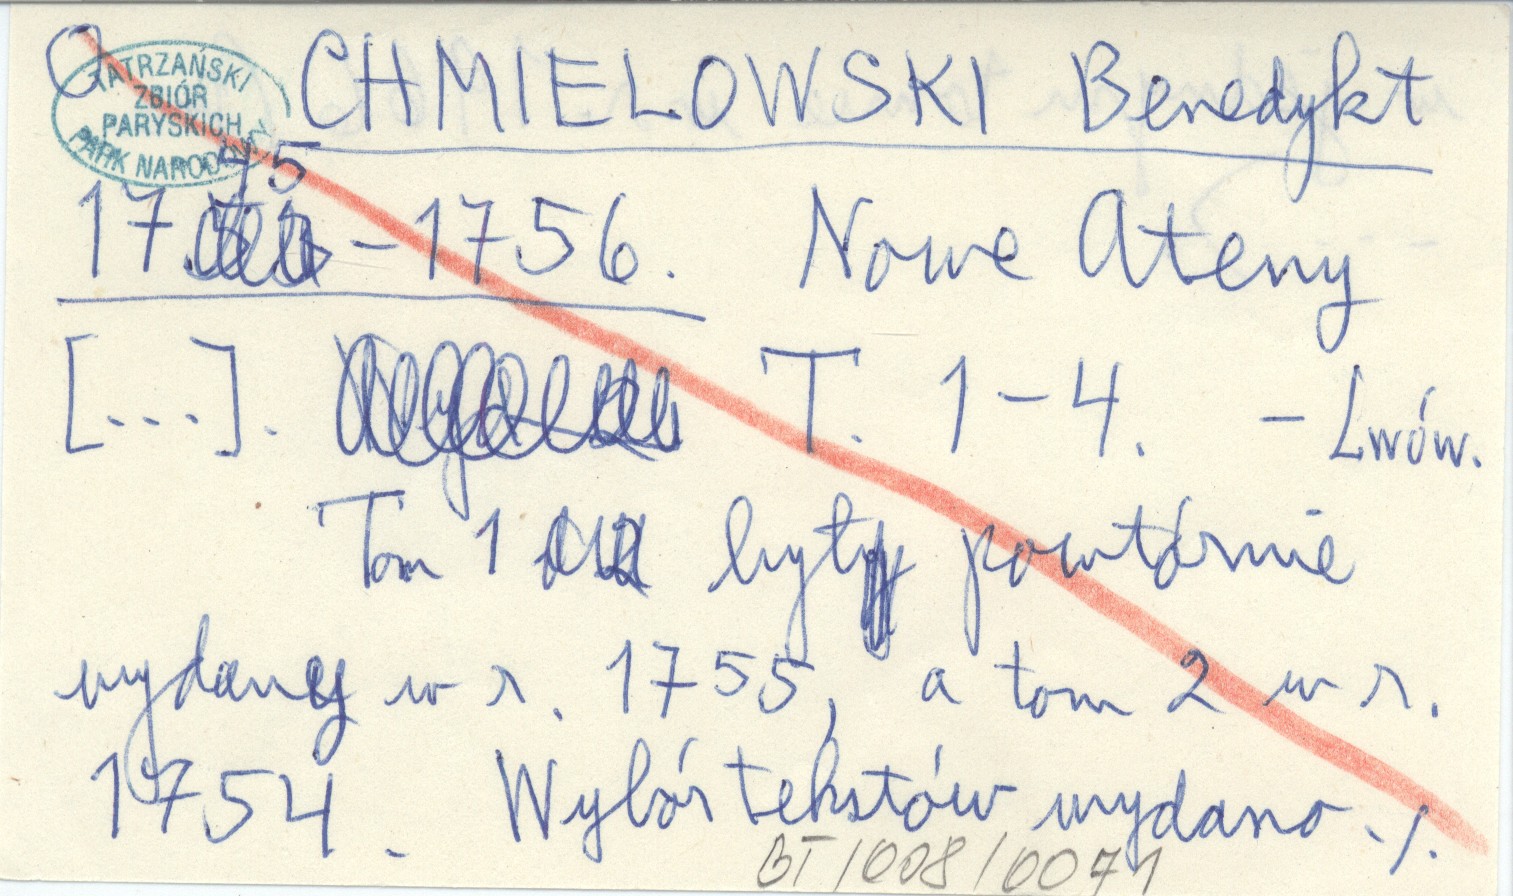 O
TATRZAŃSKI
ZBIÓR
PARYSKICH
PARK NARODOWY
CHMIELOWSKI Benedykt
45
17 – 1756. Nowe Ateny
[...]. T. 1–4. – Lwów.
Tom 1 był powtórnie
wydany w r. 1755, a tom 2 w r.
1754. Wybór tekstów wydano ./.
BT/008/0071